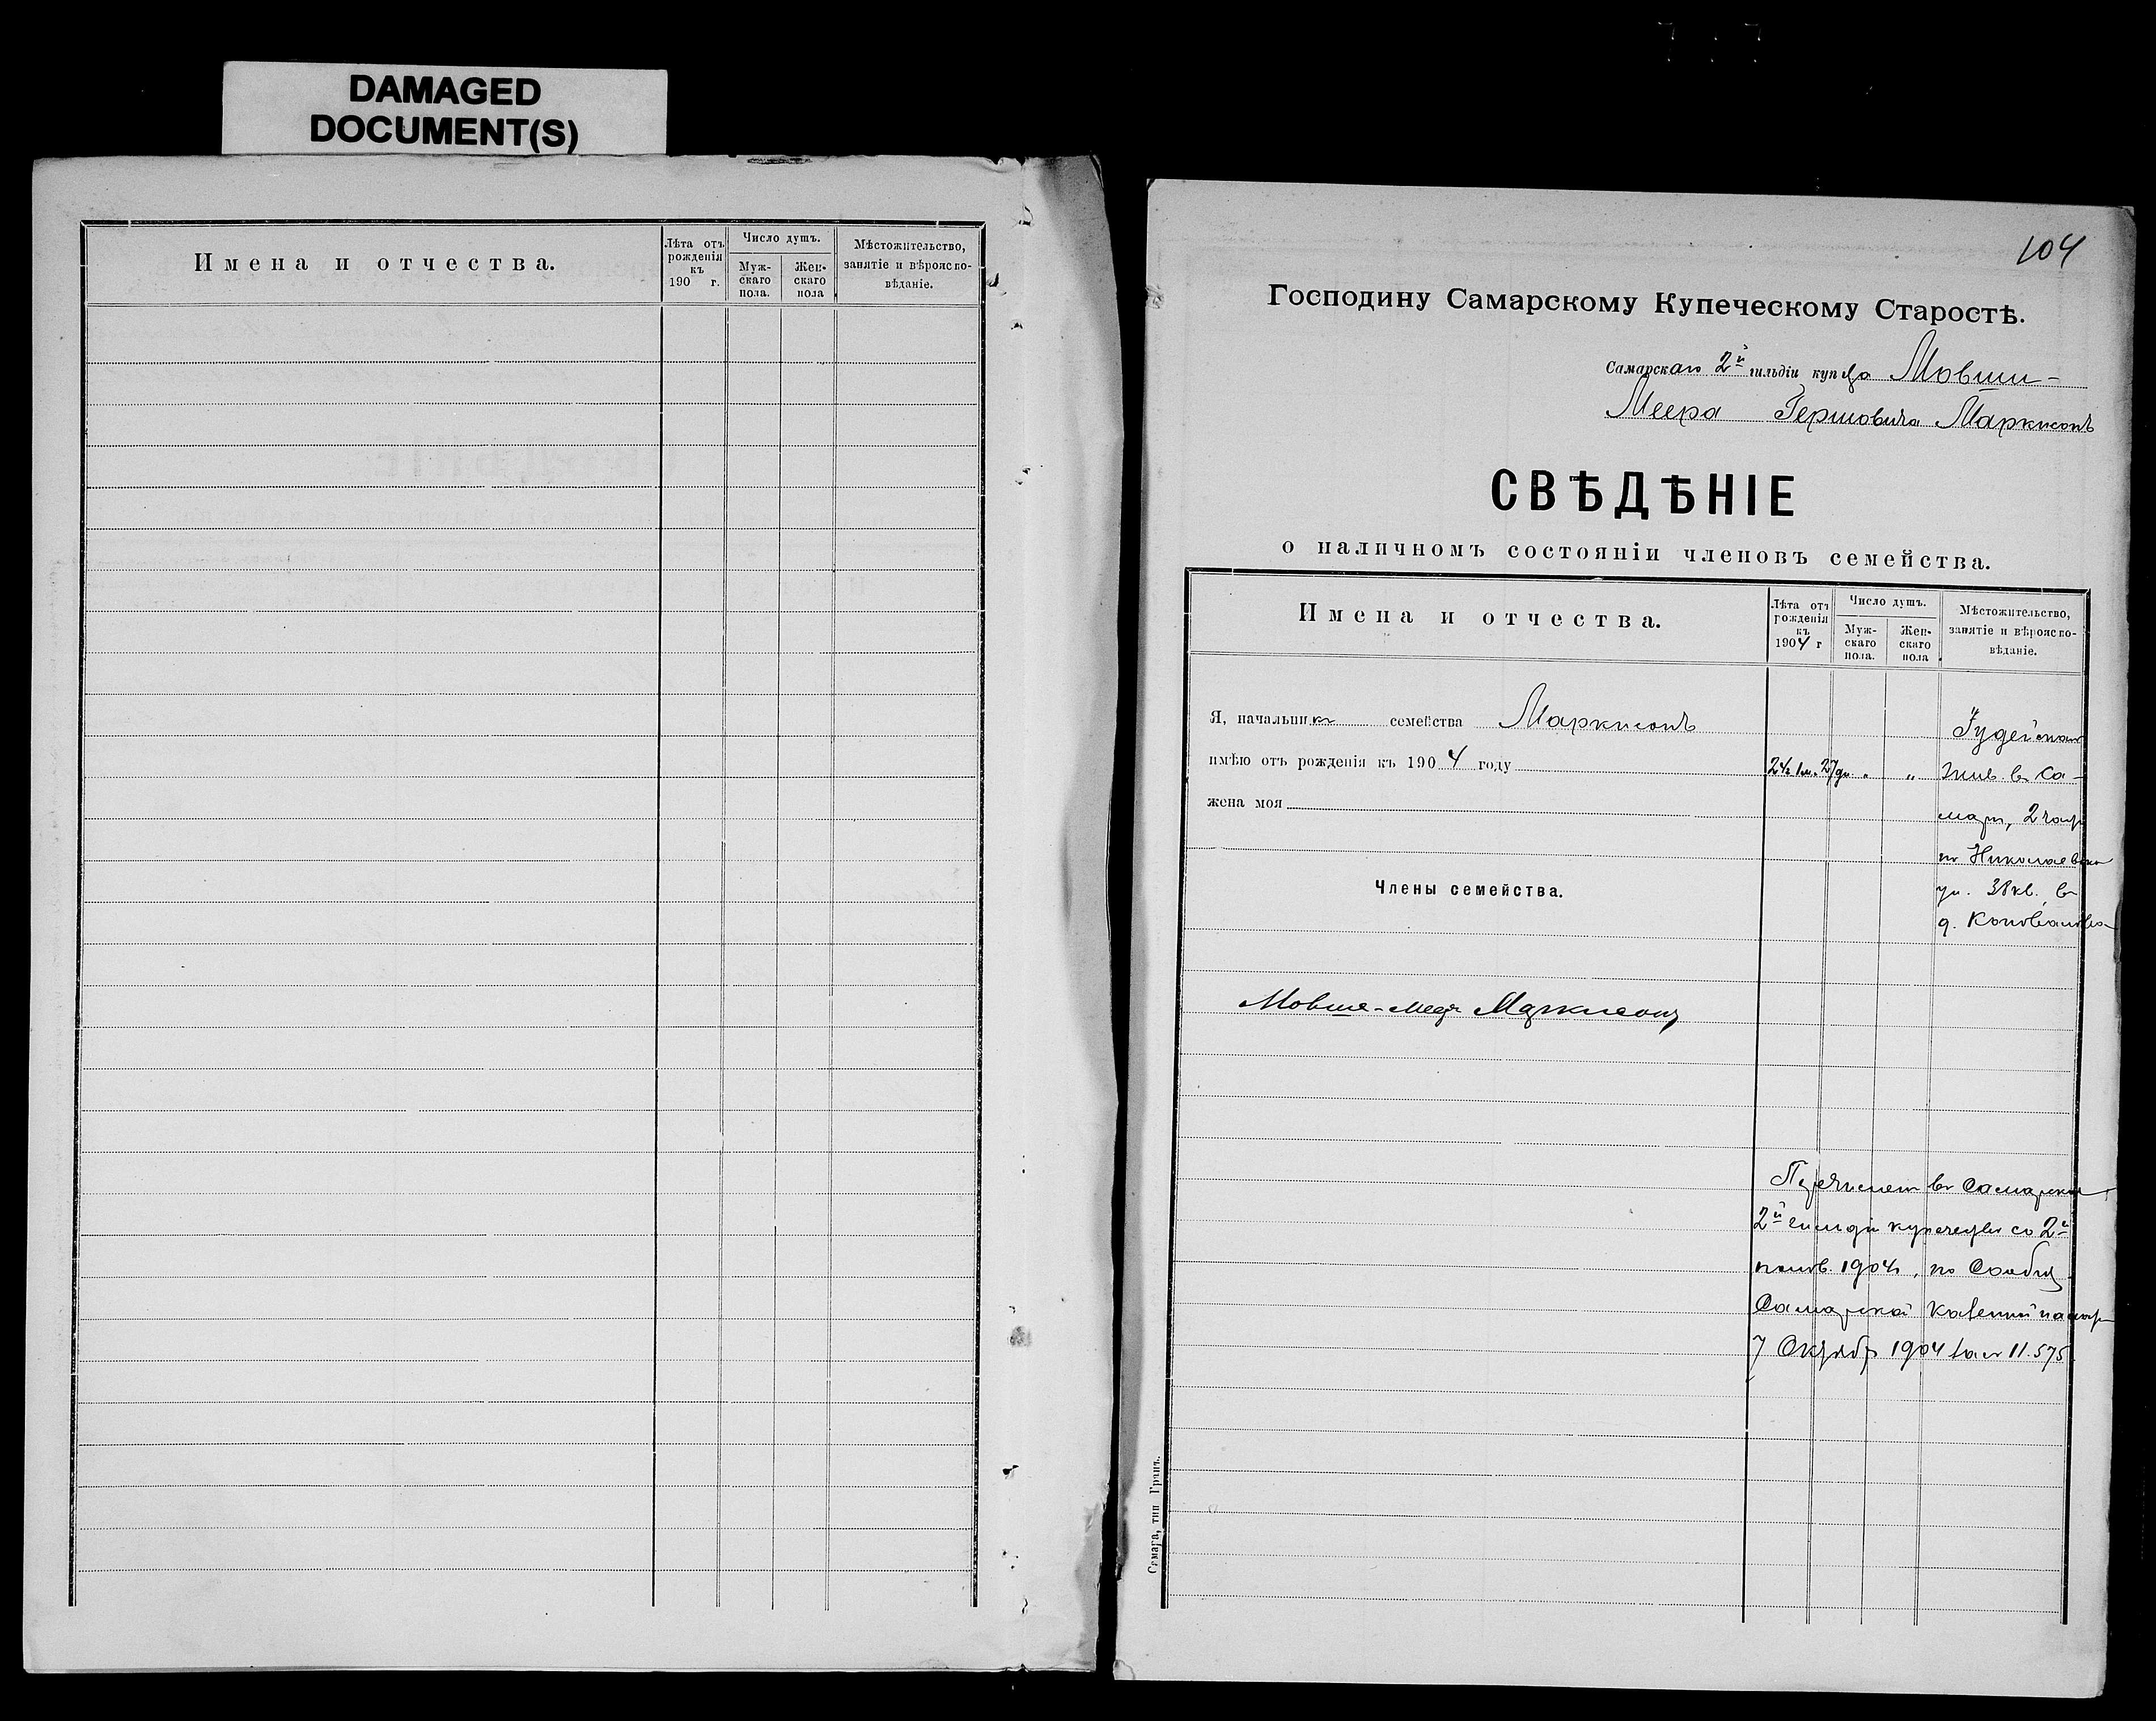 DAMAGED
DOCUMENT(S)
Имена и отчества.
Лѣта отъ рожденія къ 190 г.
Число душъ.
Мужскаго пола.
Женскаго пола
Мѣстожительство, занятіе и вѣроисповѣданіе.
104
Господину Самарскому Купеческому Старостѣ.
Самарскаго 2й гильдіи купца Мовши-
Меера Гершовича Маркисонъ
СВѢДѢНІЕ
о наличномъ состояніи членовъ семейства.
Имена и отчества.
Лѣта отъ рожденія къ 1904 г
Число душъ.
Мужскаго пола.
Женскаго пола
Мѣстожительство, занятіе и вѣроисповѣданіе.
Я, начальникъ семейства Маркисонъ
имѣю отъ рожденія къ 1904 году
жена моя
Іудейскаго
жив. въ Са-
марѣ, 2 част
по Николаевской
ул. 38 кв. въ
д. Коновалова
Члены семейства.
Мовша-Меер Маркисонъ
Перечислен въ Самарское
2й гильдіи купечество со 2й
полов. 1904 г, по Сообщ
Самарской Казенной палаты
7 Октября 1904 за № 11.575
Самара, тип Гранъ.